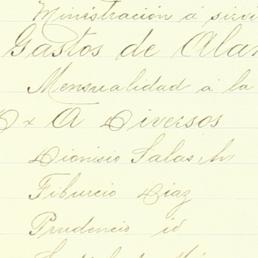 Ministración á
Gastos de
Mensualidad á la
A Diversos
Dionisio Salas,
Tiburcio Diaz
Prudencio id